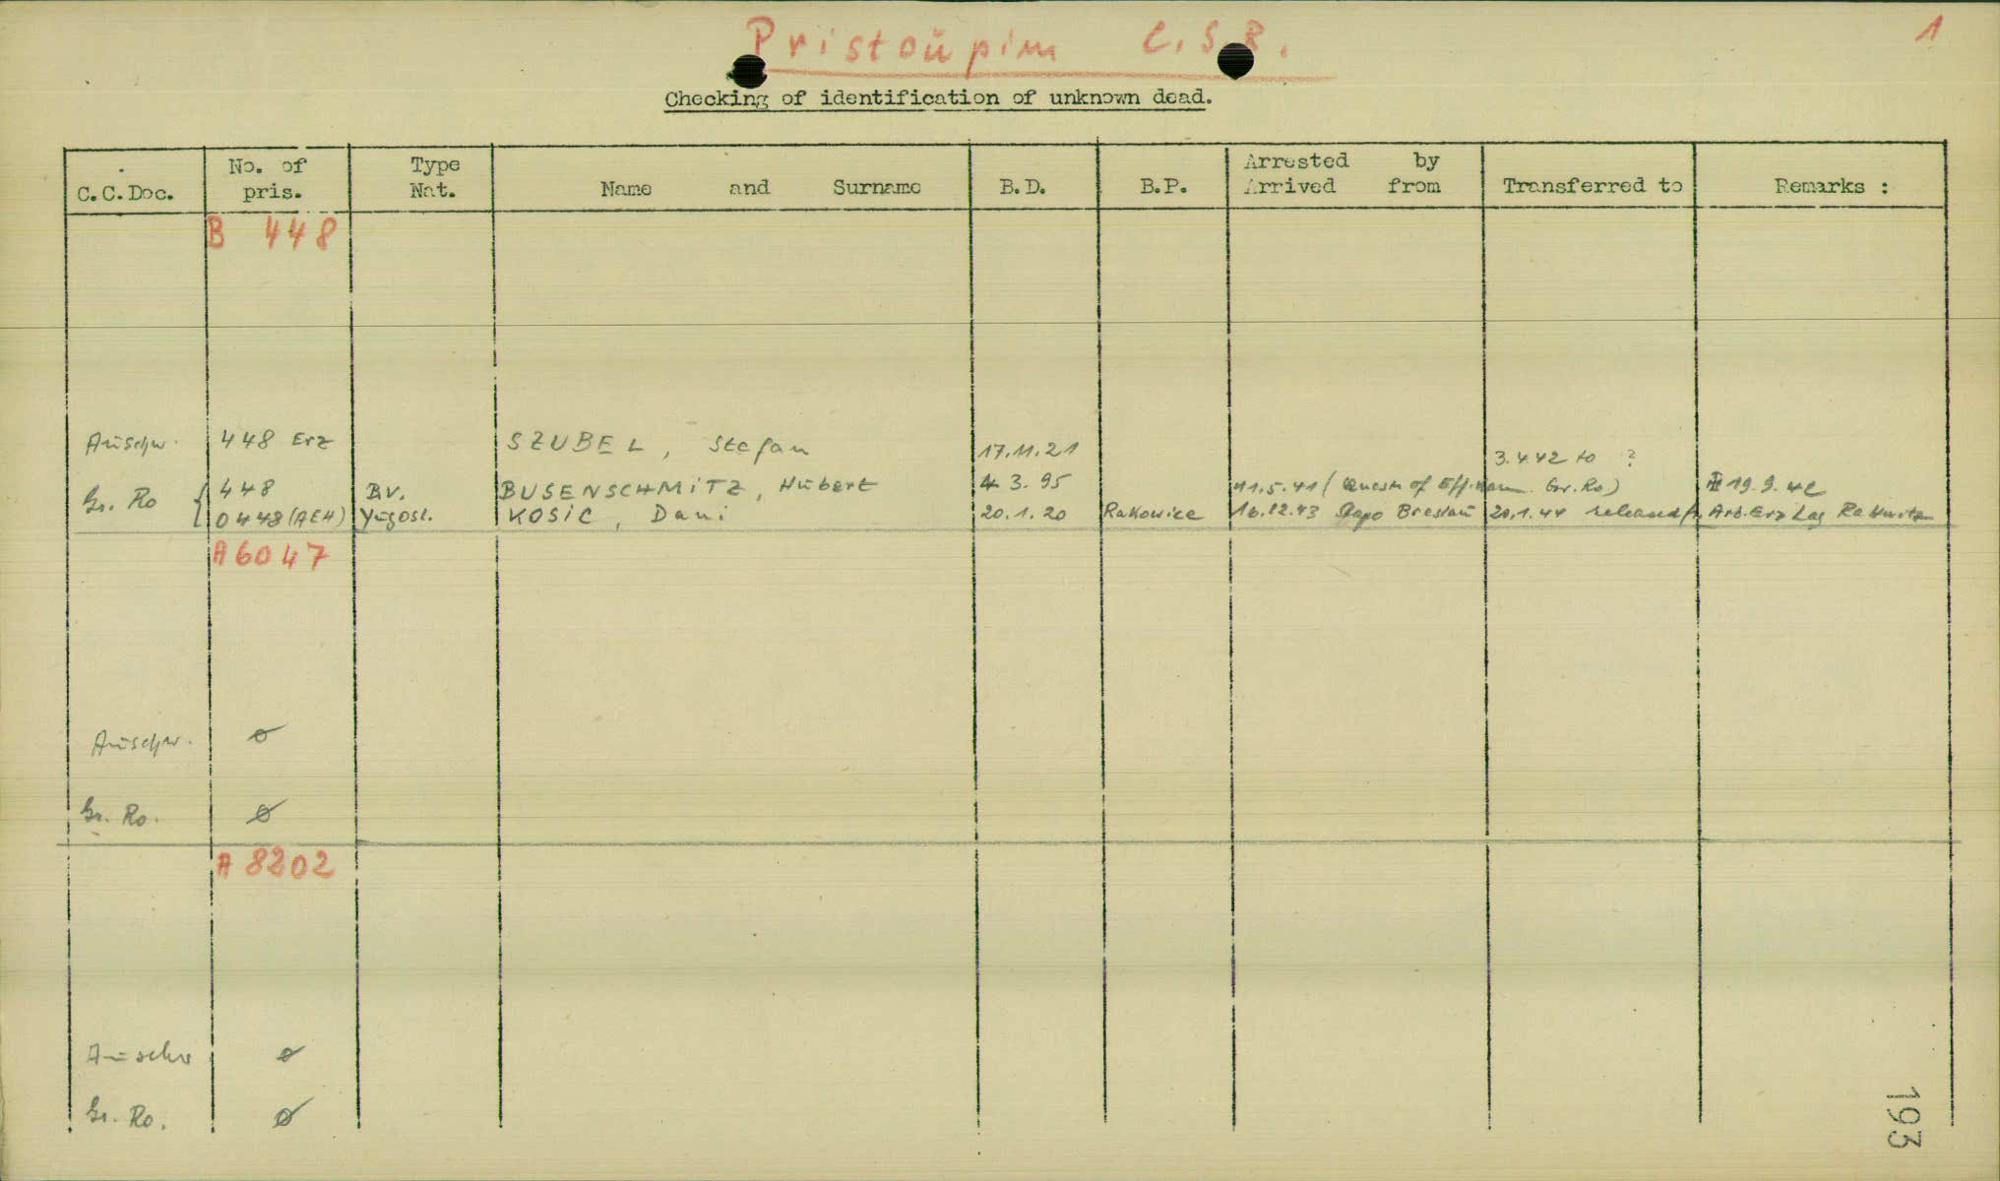 Pristoŭpim C.S.R.
1
Checking of identification of unknown dead.
C.C.Doc. No. of pris. Type Nat. Name and Surname B.D. B.P. Arrested by Arrived from Transferred to Remarks :
B 448
Auschw. 448 Erz SZUBEL, Stefan 17.11.21 3.4.42 to ?
Gr. Ro 448 BV. BUSENSCHMITZ, Hubert 4 3. 95 11.5.41 ( of Gr. Ro) 19.9.42
0448 (AEH) Yugosl. KOSIC, Dani 20.1.20 Rakovice 16.12.43 Stapo Breslau 20.1.44 released Arb. Erz Lag
A 6047
Auschw. ø
Gr. Ro. ø
A 8202
Auschw ø
Gr. Ro. ø
193